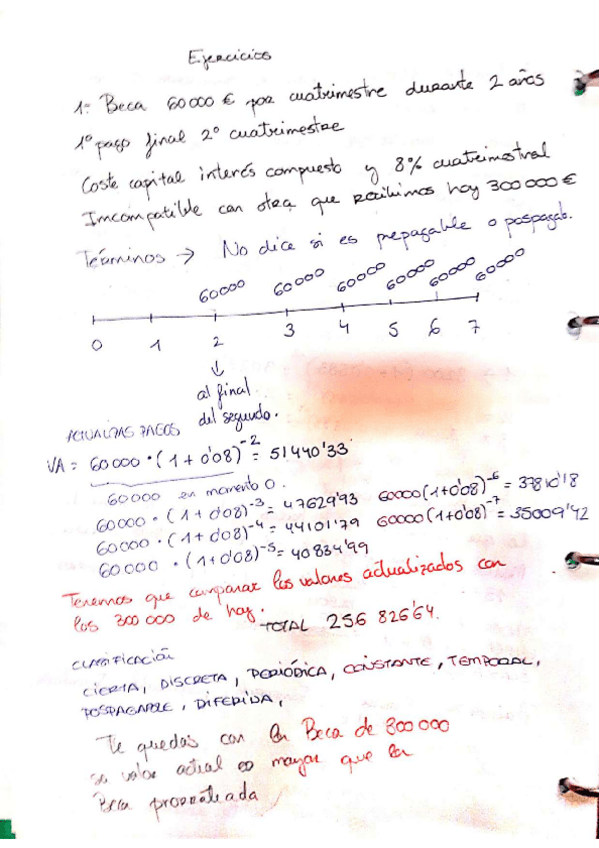 Ejercicios
1º Beca 60000 € por cuatrimestre durante 2 años
1º pago final 2º cuatrimestre
Coste capital interés compuesto y 8% cuatrimestral
Imcompatible con otra que recibimos hoy 300 000 €
Términos → No dice si es prepagable o pospagab.
60000 60000 60000 60000 60000 60000
0 1 2 3 4 5 6 7
↓
al final
del segundo.
ACTUALIZAS PAGOS
VA = 60000 · (1 + 0'08)^-2 = 51440'33
60000 en momento 0.
60000 · (1 + 0'08)^-3 = 47629'93 60000(1+0'08)^-6 = 37810'18
60000 · (1 + 0'08)^-4 = 44101'79 60000(1+0'08)^-7 = 35009'42
60000 · (1+0'08)^-5 = 40834'99
Tenemos que comparar los valores actualizados con
los 300 000 de hoy.
TOTAL 256 826'64.
CLASIFICACIÓN
CIERTA, DISCRETA, PERIÓDICA, CONSTANTE, TEMPORAL,
POSPAGABLE, DIFERIDA,
Te quedas con la Beca de 300 000
su valor actual es mayor que la
Beca prorrateada